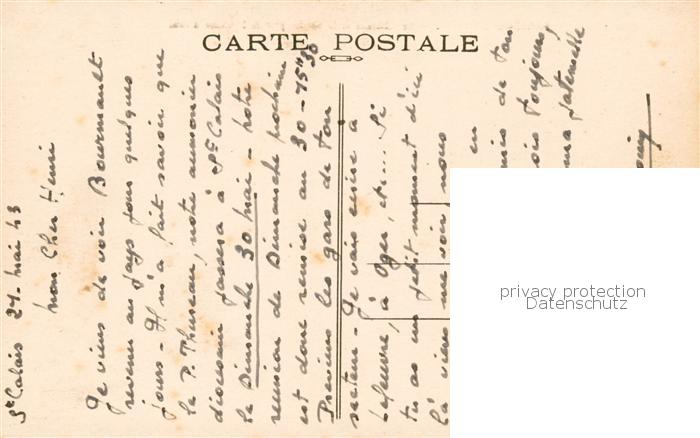 CARTE POSTALE
St Calais 27 - Mai 43
Mon Cher Henri
Je viens de voir Bourmault
revenu au pays pour quelques
jours - Il m'a fait savoir que
le P. Thureau, notre aumonier
diocésain passera à St Calais
le Dimanche 30 Mai - notre
réunion de Dimanche prochain
est donc remise au 30 - 15H30
Préviens les gars de ton
secteur - Je vais écrire à
Lefeuvre, à Oger, etc... Si
tu as un petit moment d'ici
là viens me voir nous
en
de ton
toujours,
fraternelle
privacy protection
Datenschutz